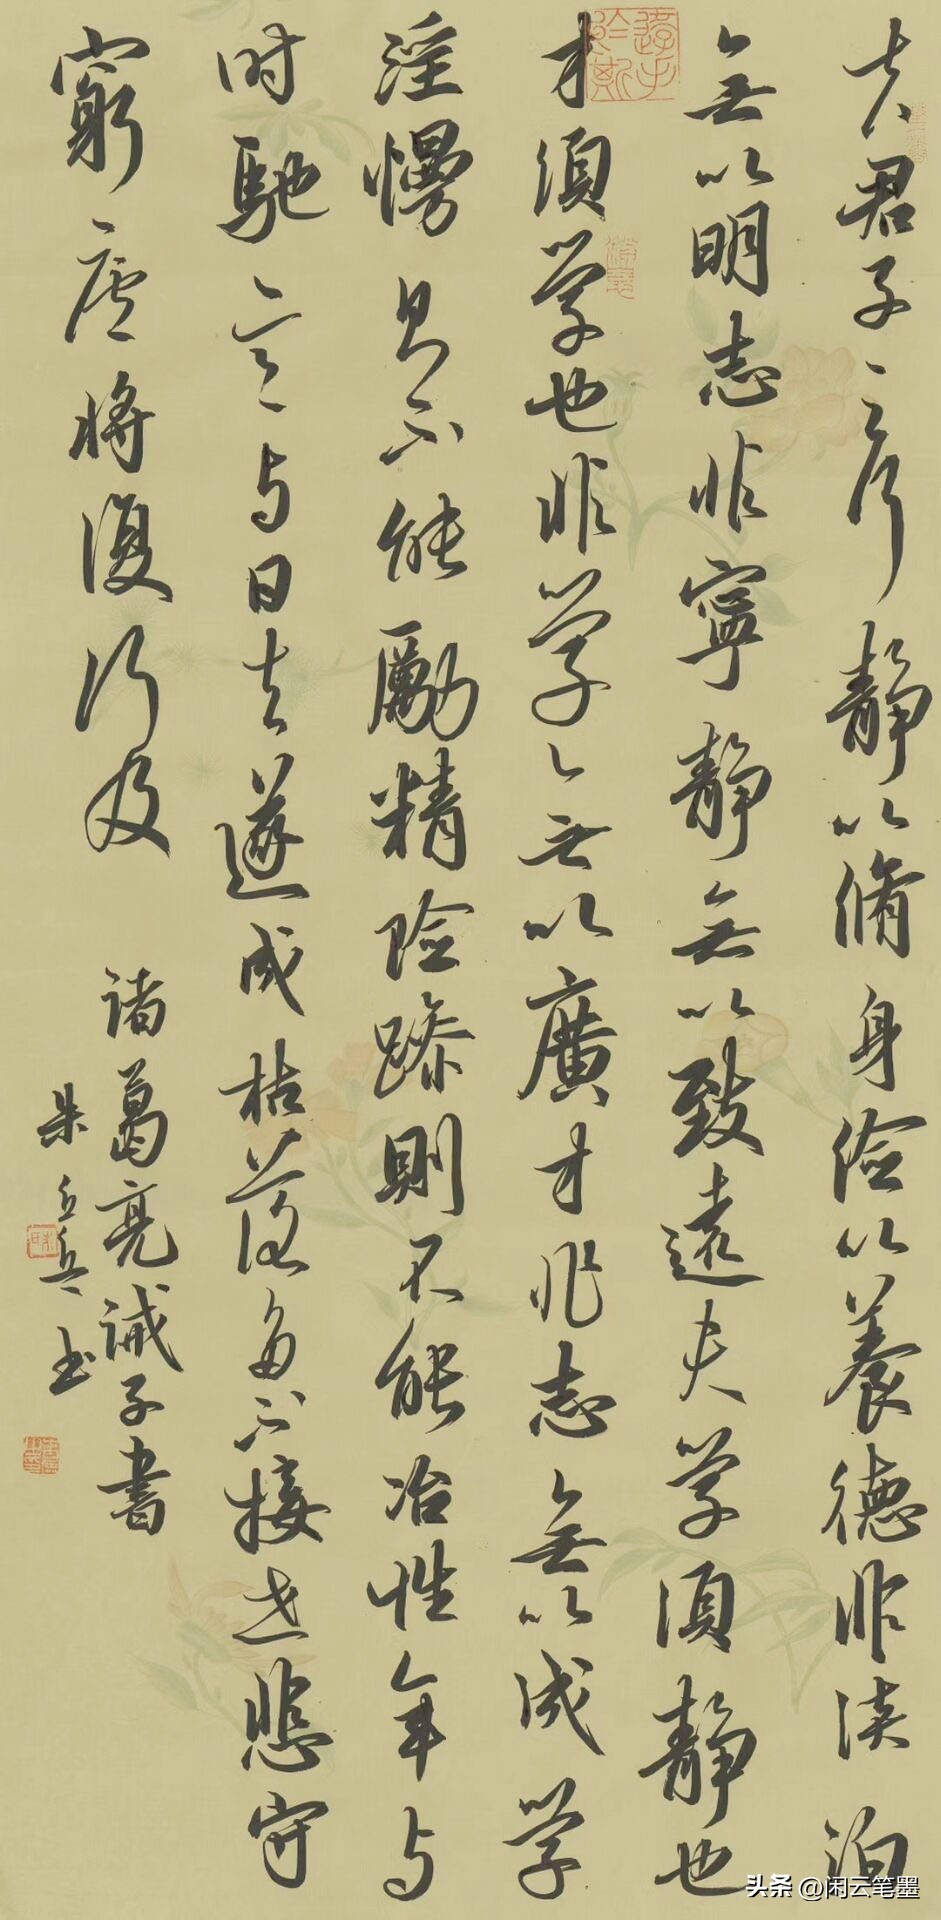 夫君子之行静以脩身儉以養德非淡泊
無以明志非寧静無以致遠夫学須静也
才須学也非学無以廣才非志無以成学
淫慢則不能勵精險躁則不能冶性年与
时馳意与日去遂成枯落多不接世悲守
窮廬將復何及
諸葛亮诫子書
朱书
头条 @闲云笔墨